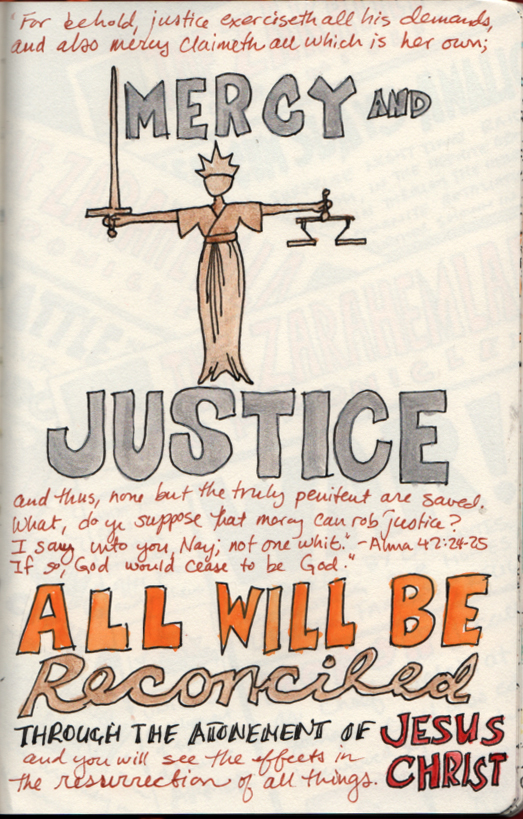 "For behold, justice exerciseth all his demands,
and also mercy claimeth all which is her own;
MERCY AND
JUSTICE
and thus, none but the truly penitent are saved.
What, do ye suppose that mercy can rob justice?
I say unto you, Nay; not one whit." -Alma 42:24-25
If so, God would cease to be God."
ALL WILL BE
Reconciled
THROUGH THE ATONEMENT OF JESUS
and you will see the effects in
the resurrection of all things. CHRIST